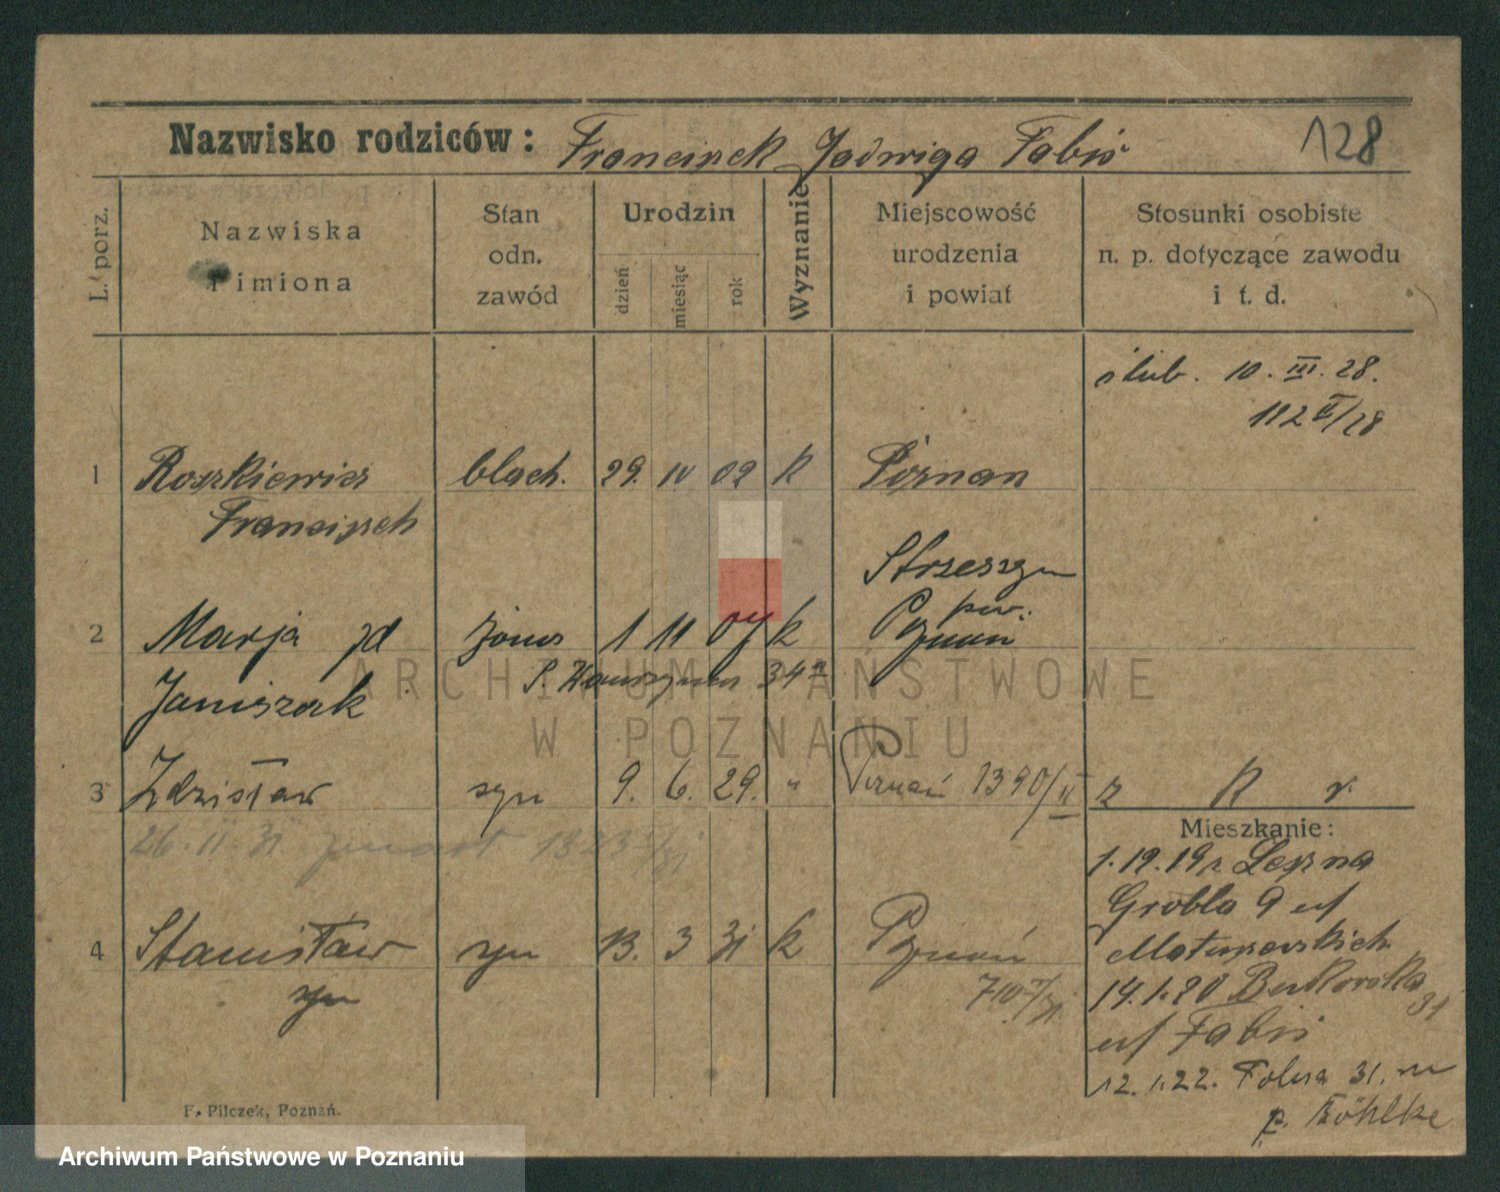 128
Nazwisko rodziców: Franciszek Jadwiga Fabiś
L. porz.
Nazwiska i imiona
Stan odn. zawód
Urodzin
dzień
miesiąc
rok
Wyznanie
Miejscowość urodzenia i powiat
Stosunki osobiste n. p. dotyczące zawodu i t. d.
ślub. 10. III. 28.
112 II/28
1 Roszkiewicz blach. 29. IV 02 k Poznan
Franciszek
Strzeszyn
pow.
2 Marja żona 1 11 07 k Poznań
Janiszak
3 Zdzisław syn 9. 6. 29. " Poznań 1390/II z K r.
26. II. 31
Mieszkanie:
Grobla 9
4 Stanisław syn 13. 3 31 k Poznań
syn
14.1.20 Bukowska 31
Fabiś
12. 1.22. 31.
F. Pilczek, Poznań.
ARCHIWUM PAŃSTWOWE
W POZNANIU
Archiwum Państwowe w Poznaniu